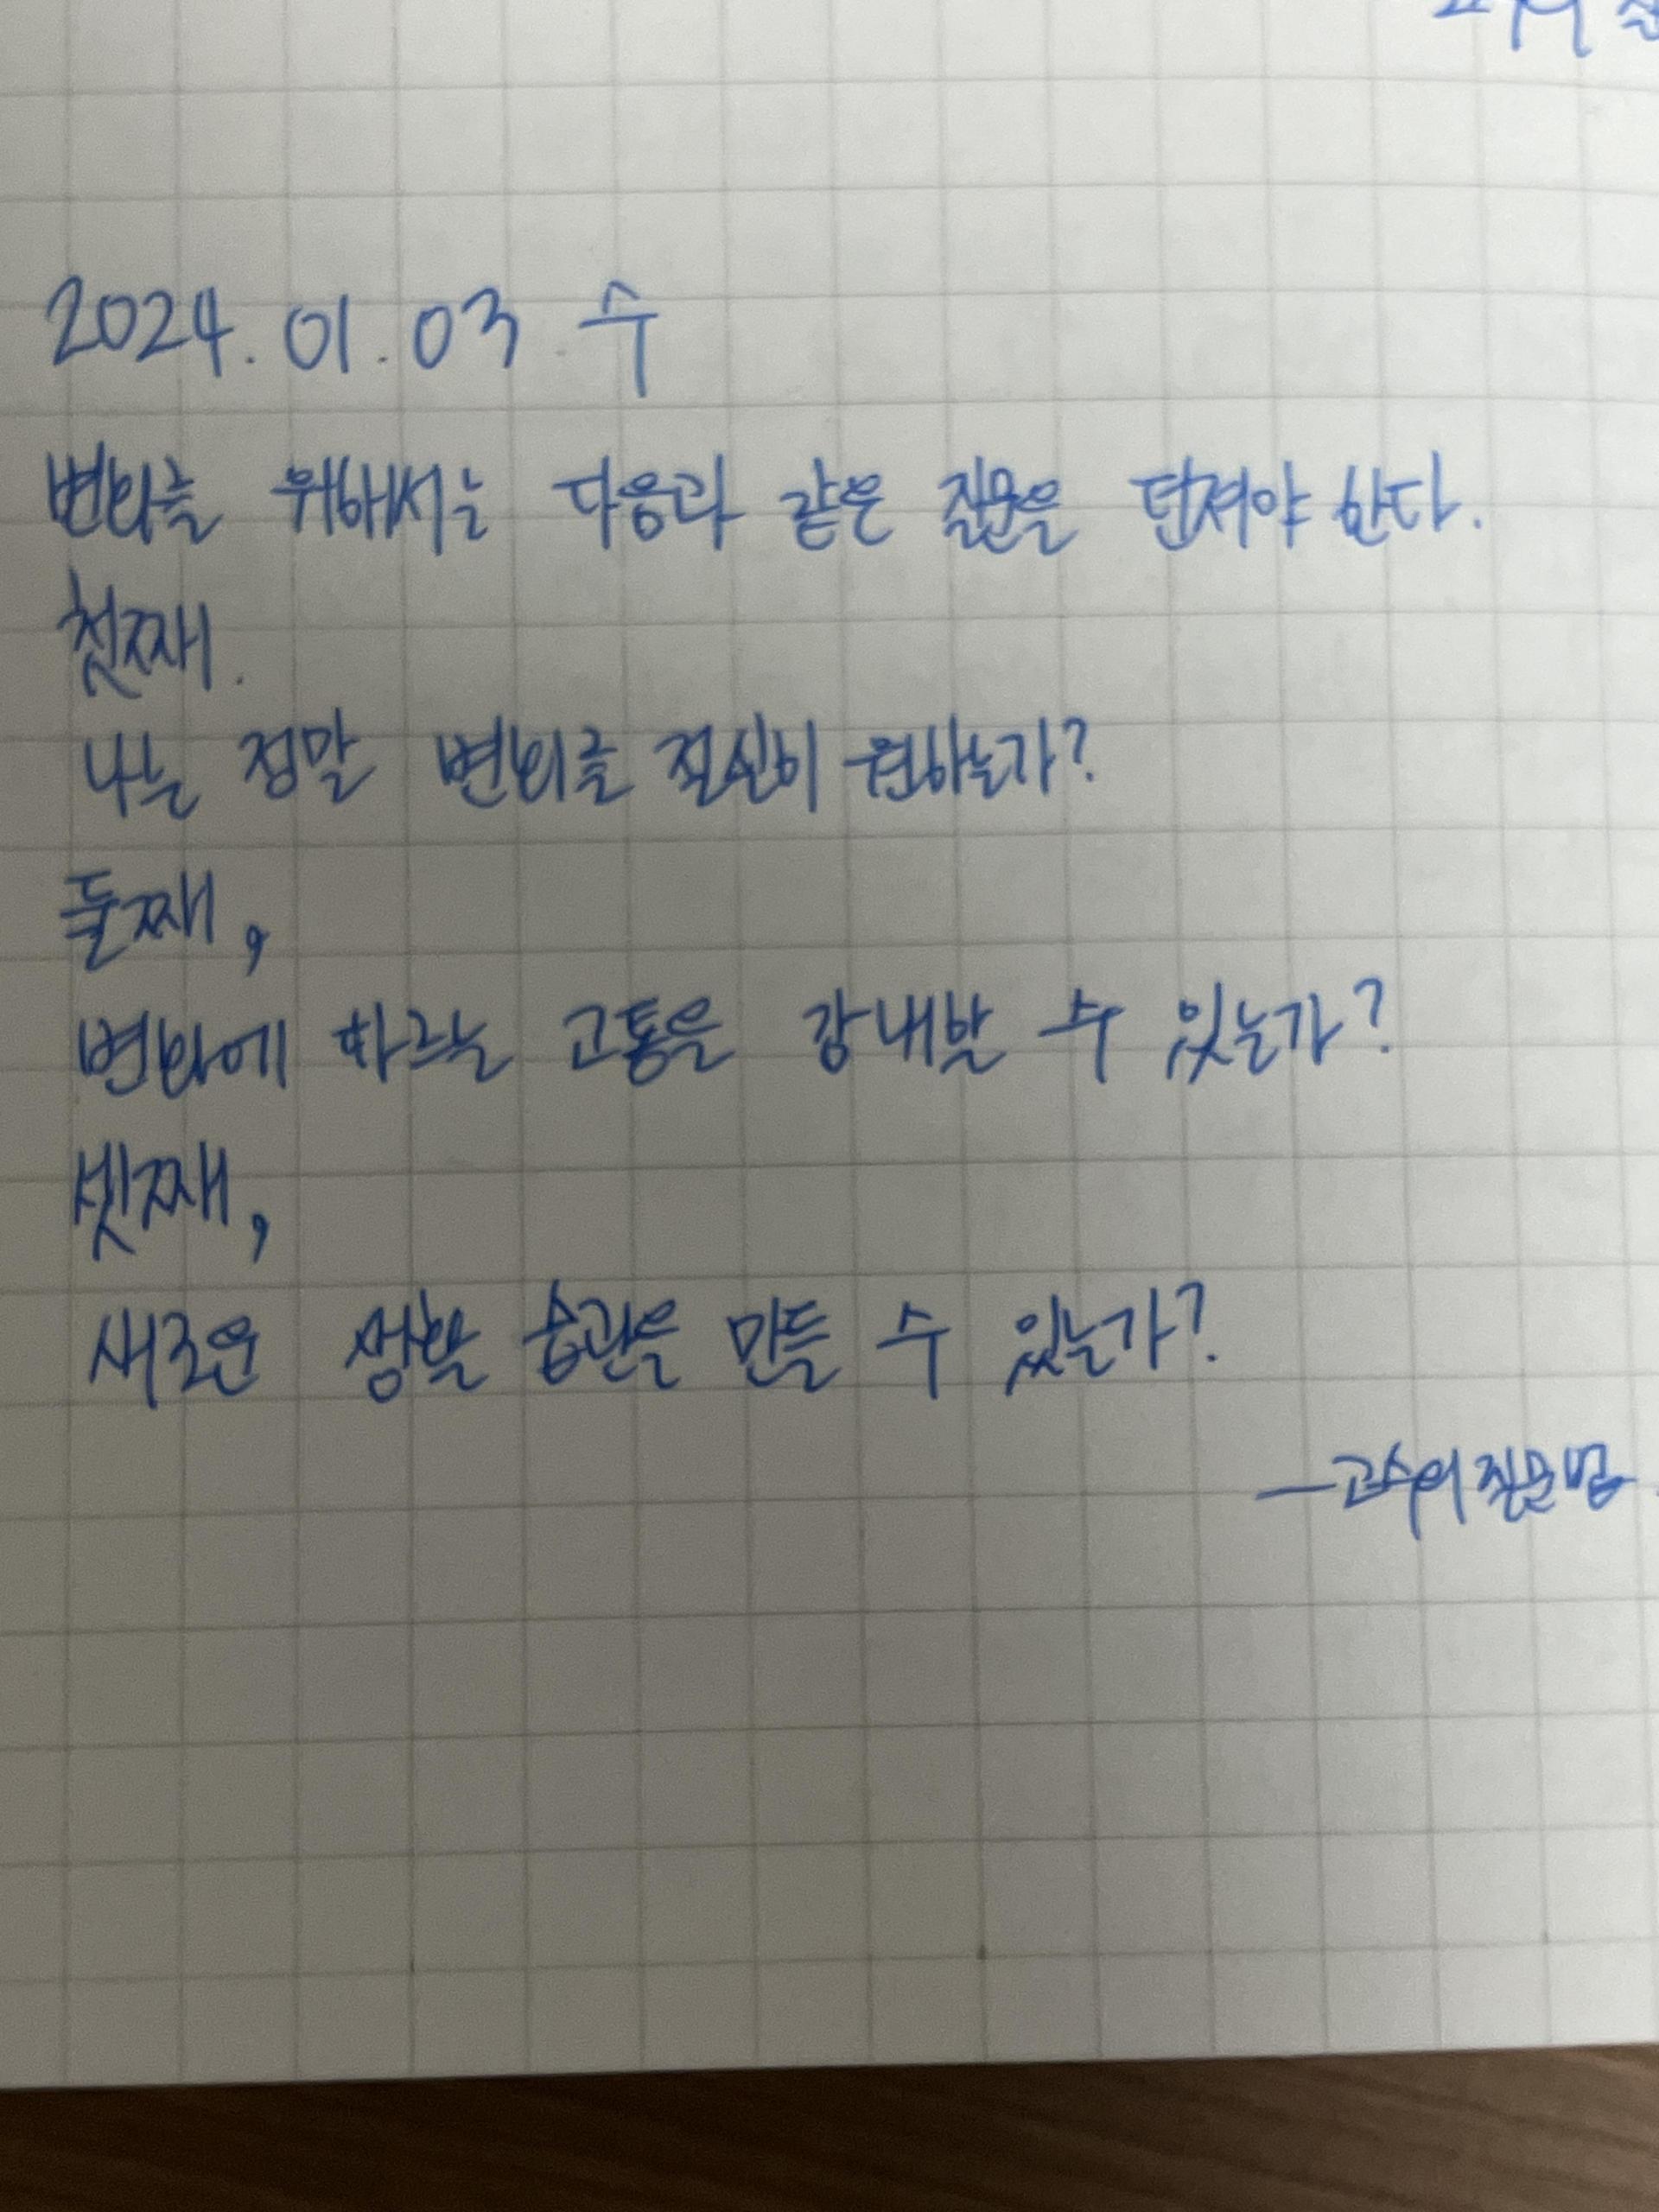 2024. 01. 03 수
변화를 위해서는 다음과 같은 질문을 던져야 한다.
첫째.
나는 정말 변화를 절실히 원하는가?
둘째,
변화에 따르는 고통을 감내할 수 있는가?
셋째,
새로운 생활 습관을 만들 수 있는가?
—고수의 질문법.